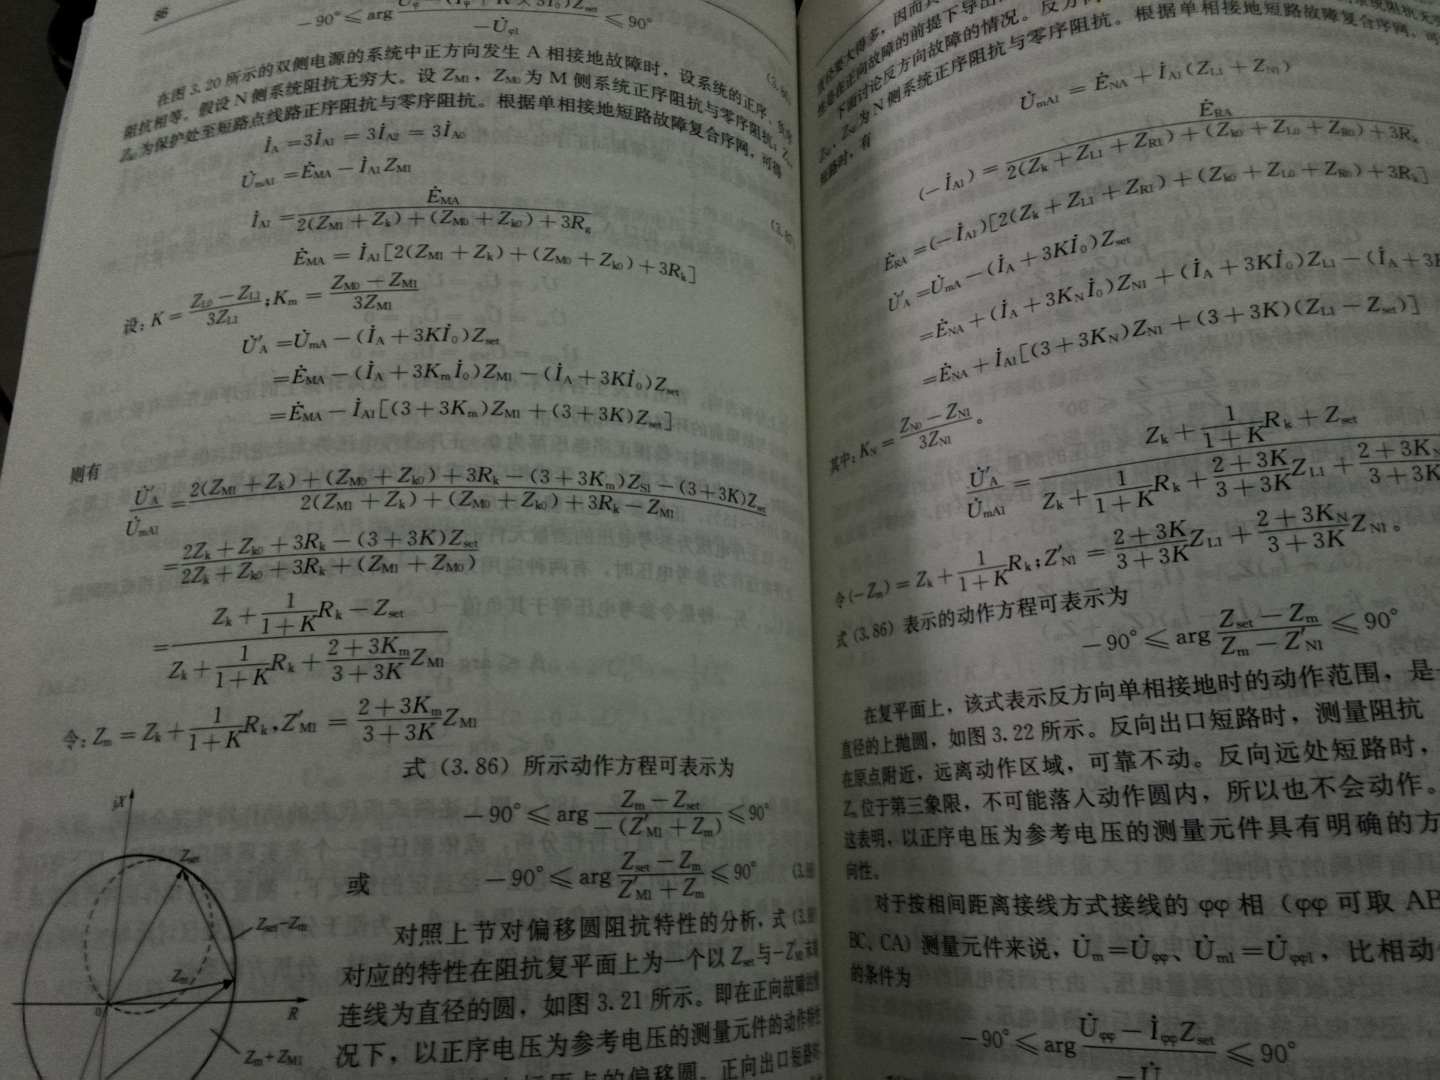 86
-90°≤arg ≤90°
-U̇φ1
(3.86)
在图 3.20 所示的双侧电源的系统中正方向发生 A 相接地故障时,设系统的正序、负序
阻抗相等。假设 N 侧系统阻抗无穷大。设 ZM1,ZM0 为 M 侧系统正序阻抗与零序阻抗;Zk,
Zk0 为保护处至短路点线路正序阻抗与零序阻抗。根据单相接地短路故障复合序网,可得
İA =3İA1 = 3İA2 = 3İA0
U̇mA1 =ĖMA − İA1ZM1
İA1 = ĖMA / 2(ZM1 + Zk) + (ZM0 + Zk0) + 3Rg
(3.87)
ĖMA = İA1[2(ZM1 + Zk) + (ZM0 + Zk0) + 3Rk]
设: K = ZL0 − ZL1 / 3ZL1 ; Km = ZM0 − ZM1 / 3ZM1
U̇′A =U̇mA − (İA + 3Kİ0)Zset
=ĖMA − (İA + 3Kmİ0)ZM1 − (İA + 3Kİ0)Zset
=ĖMA − İA1[(3 + 3Km)ZM1 + (3 + 3K)Zset]
则有
U̇′A / U̇mA1 = 2(ZM1 + Zk) + (ZM0 + Zk0) + 3Rk − (3 + 3Km)ZS1 − (3 + 3K)Zset / 2(ZM1 + Zk) + (ZM0 + Zk0) + 3Rk − ZM1
= 2Zk + Zk0 + 3Rk − (3 + 3K)Zset / 2Zk + Zk0 + 3Rk + (ZM1 + ZM0)
= Zk + 1/1 + K Rk − Zset / Zk + 1/1 + K Rk + 2 + 3Km/3 + 3K ZM1
令: Zm = Zk + 1/1 + K Rk, Z′M1 = 2 + 3Km/3 + 3K ZM1
式 (3.86) 所示动作方程可表示为
−90° ≤ arg Zm − Zset / −(Z′M1 + Zm) ≤ 90°
或 −90° ≤ arg Zset − Zm / Z′M1 + Zm ≤ 90°
对照上节对偏移圆阻抗特性的分析,式
对应的特性在阻抗复平面上为一个以 Zset 与
连线为直径的圆,如图 3.21 所示。即在正向故障
况下,以正序电压为参考电压的测量元件的动作特性
偏移圆。正向出口短路
jX
Zset
Zset−Zm
Zm
0
R
Zm+ZM1
是在正向故障的前提下导出
下面讨论反方向故障的情况。
ZN0 为 N 侧系统正序阻抗与零序阻抗。根据单相接地短路故障复合序网,可
短路时,有
U̇mA1 = ĖNA + İA1(ZL1 + ZN1)
(−İA1) = ĖRA / 2(Zk + ZL1 + ZR1) + (Zk0 + ZL0 + ZR0) + 3Rk
ĖRA =(−İA1)[2(Zk + ZL1 + ZR1) + (Zk0 + ZL0 + ZR0) + 3Rk]
U̇′A =U̇mA − (İA + 3Kİ0)Zset
=ĖNA + (İA + 3KNİ0)ZN1 + (İA + 3Kİ0)ZL1 − (İA + 3K
=ĖNA + İA1[(3 + 3KN)ZN1 + (3 + 3K)(ZL1 − Zset)]
其中: KN = ZN0 − ZN1 / 3ZN1 。
U̇′A / U̇mA1 = Zk + 1/1 + K Rk + Zset / Zk + 1/1 + K Rk + 2 + 3K/3 + 3K ZL1 + 2 + 3KN/3 + 3K
令 (−Zm) = Zk + 1/1 + K Rk; Z′N1 = 2 + 3K/3 + 3K ZL1 + 2 + 3KN/3 + 3K ZN1。
式 (3.86) 表示的动作方程可表示为
−90° ≤ arg Zset − Zm / Zm − Z′N1 ≤ 90°
在复平面上,该式表示反方向单相接地时的动作范围,是
直径的上抛圆,如图 3.22 所示。反向出口短路时,测量阻抗
在原点附近,远离动作区域,可靠不动。反向远处短路时,
Zm 位于第三象限,不可能落入动作圆内,所以也不会动作。
这表明,以正序电压为参考电压的测量元件具有明确的方
向性。
对于按相间距离接线方式接线的 φφ 相(φφ 可取 AB
BC、CA)测量元件来说,U̇m=U̇φφ、U̇m1=U̇φφ1,比相动
的条件为
−90° ≤ arg U̇φφ − İφφZset / −U̇ ≤ 90°